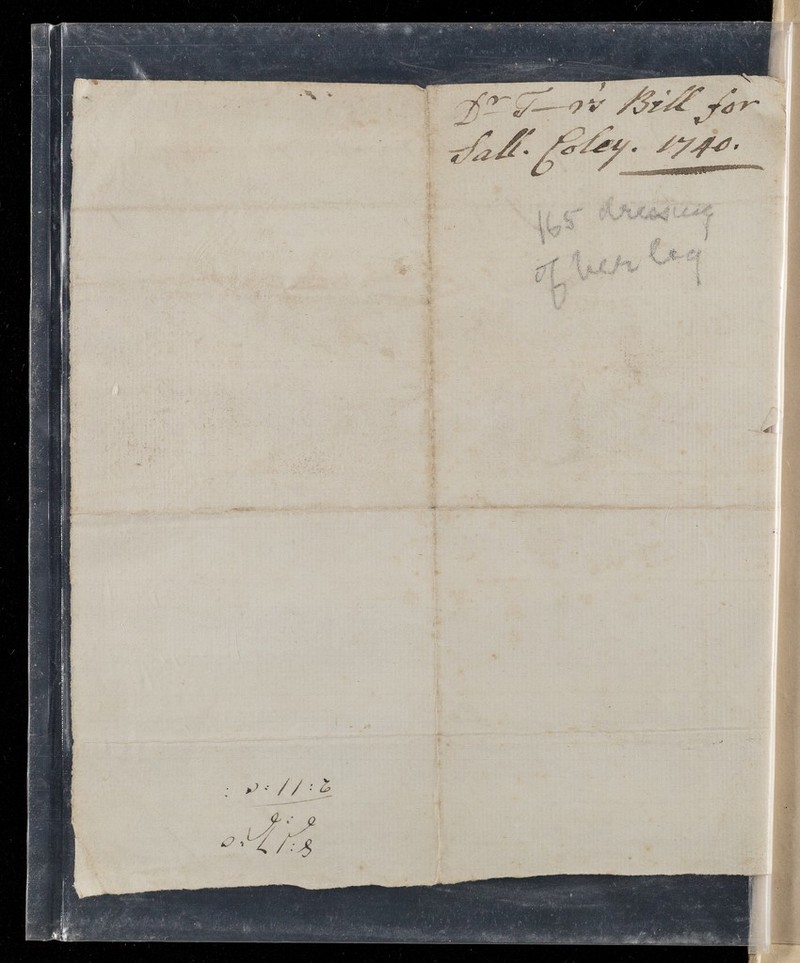 Dr T—r's Bill for
Sall. Coley. 1740.
165 dressing
of her leg